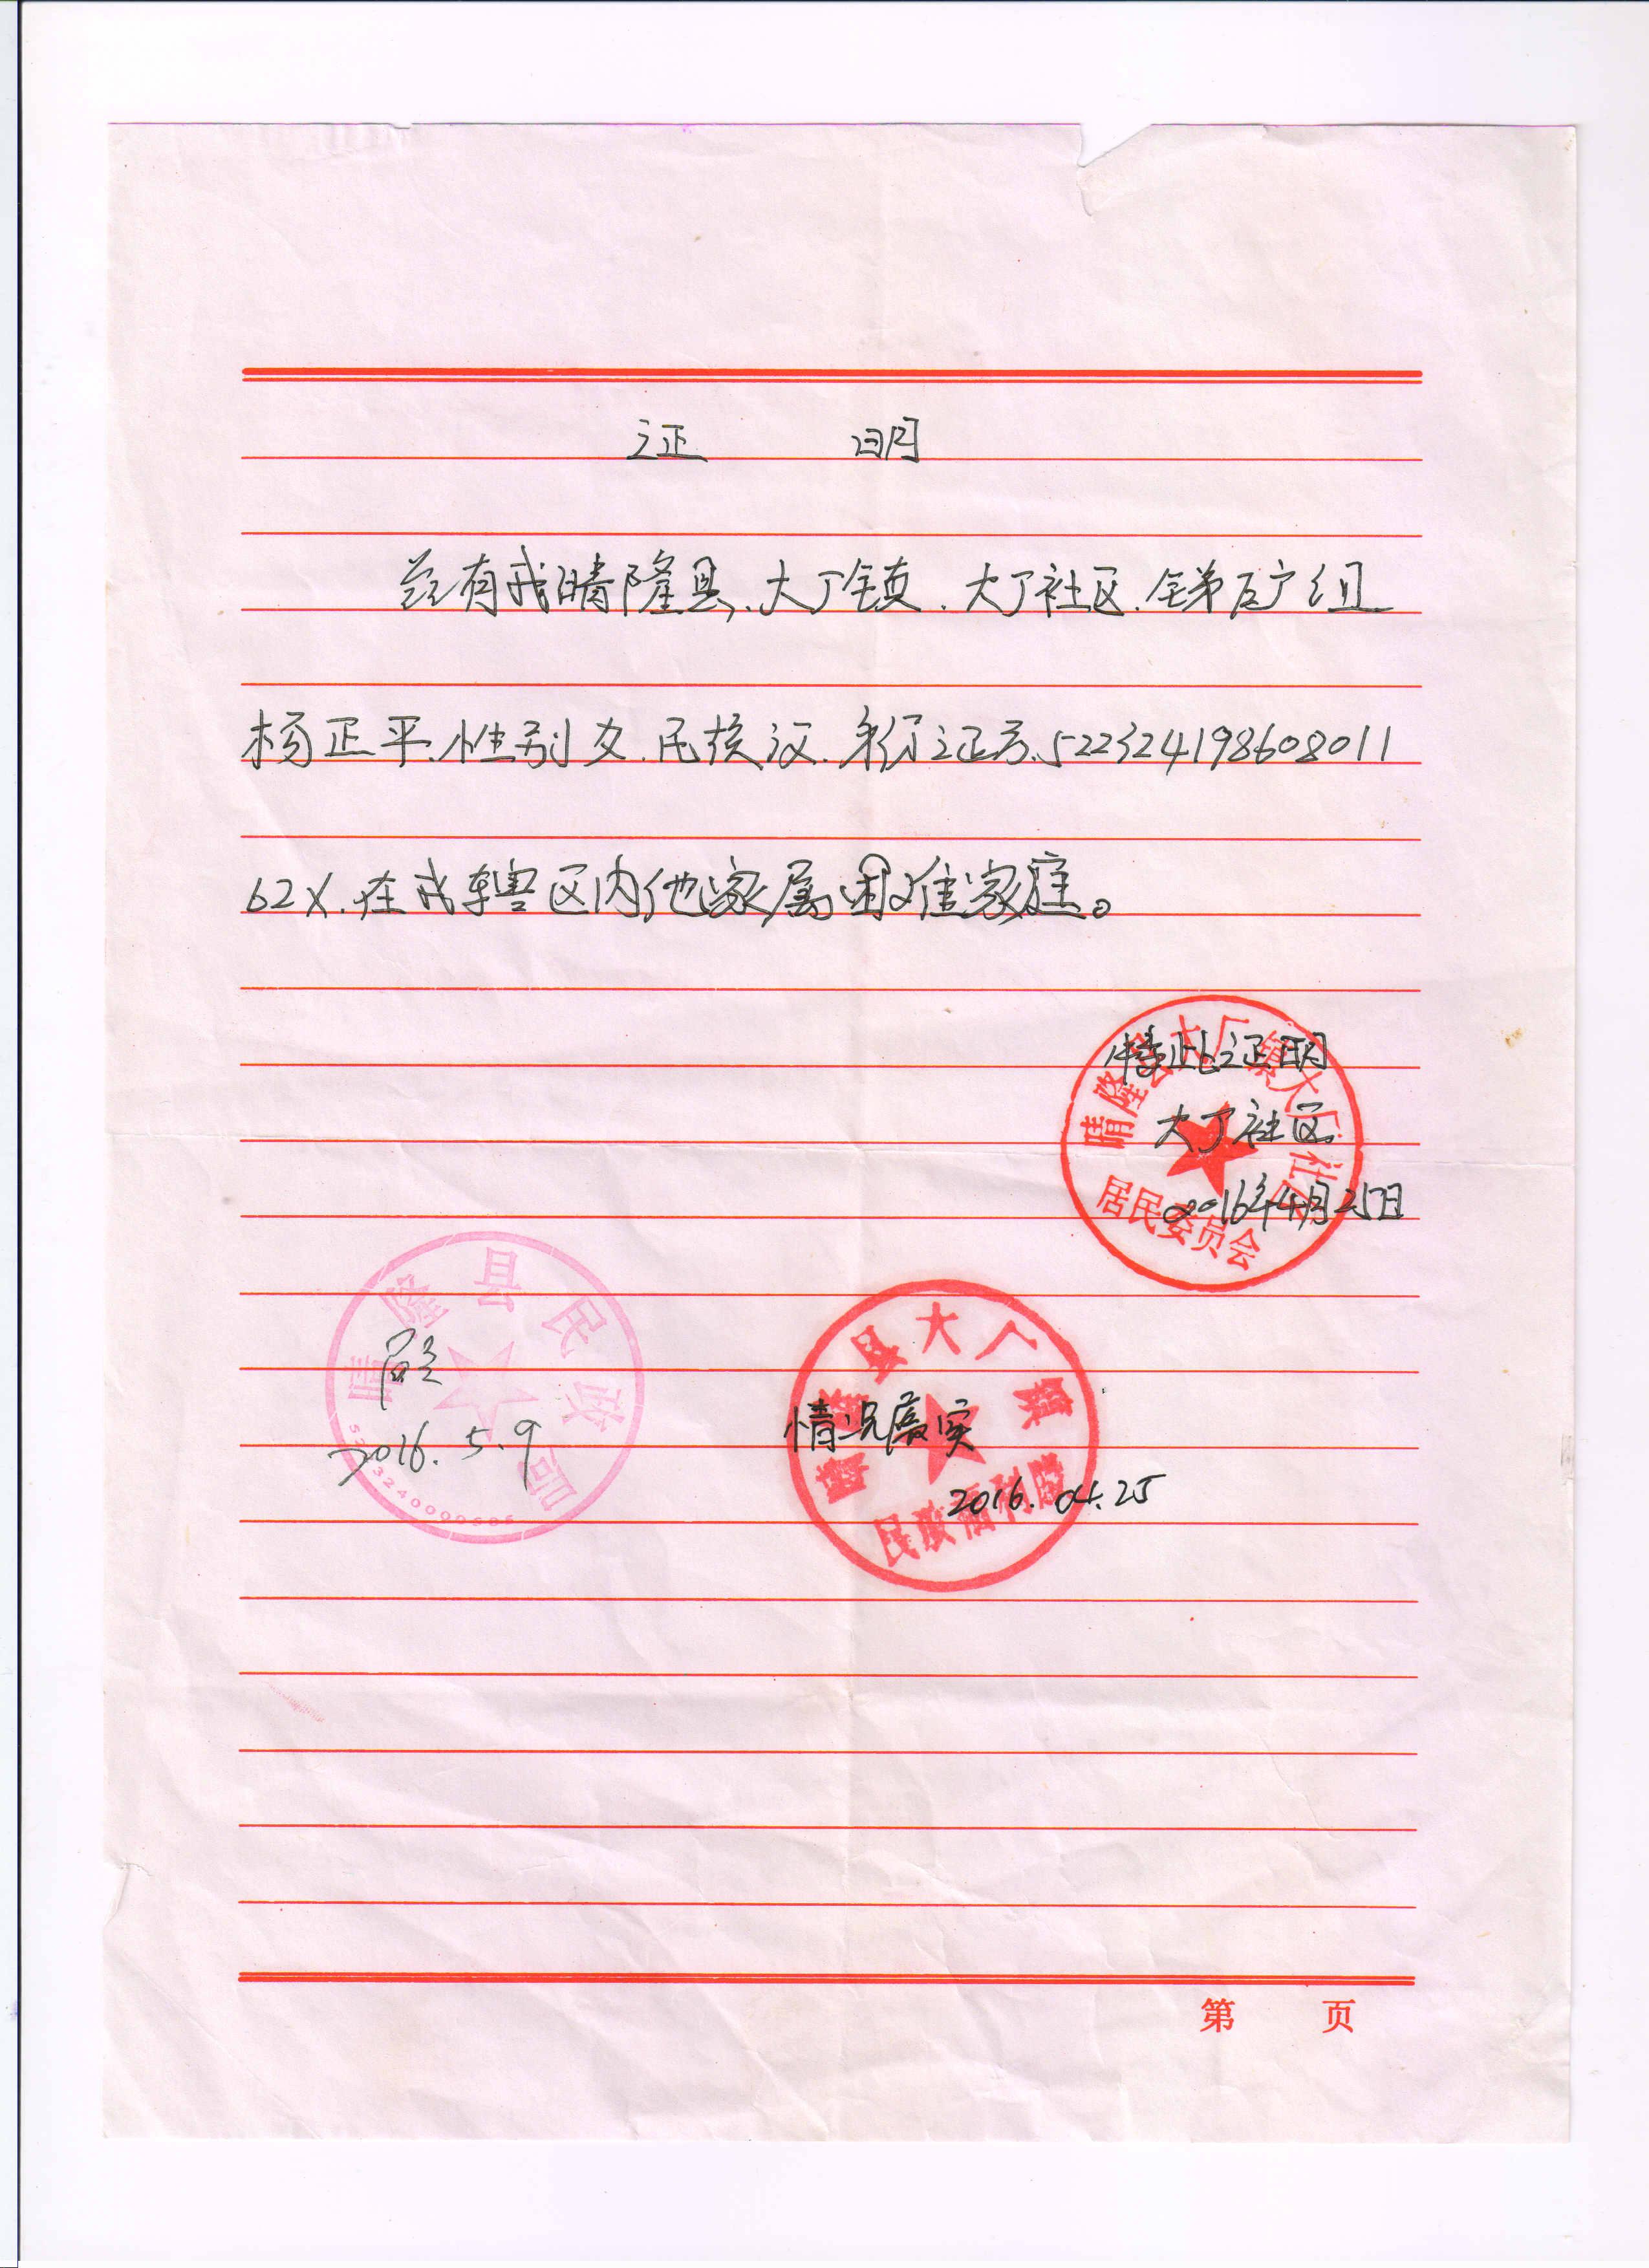 证 明
兹有我晴隆县、大厂镇、大厂社区、锑矿组
杨正平、性别女、民族汉、身份证号、522324198608011
62X、在我辖区内他家属困难家庭。
特此证明
大厂社区
2016年4月25日
晴隆县大厂镇大厂社区
居民委员会
情况属实
2016.04.25
晴隆县大厂镇
属实
2016.5.9
晴隆县民政局
第 页